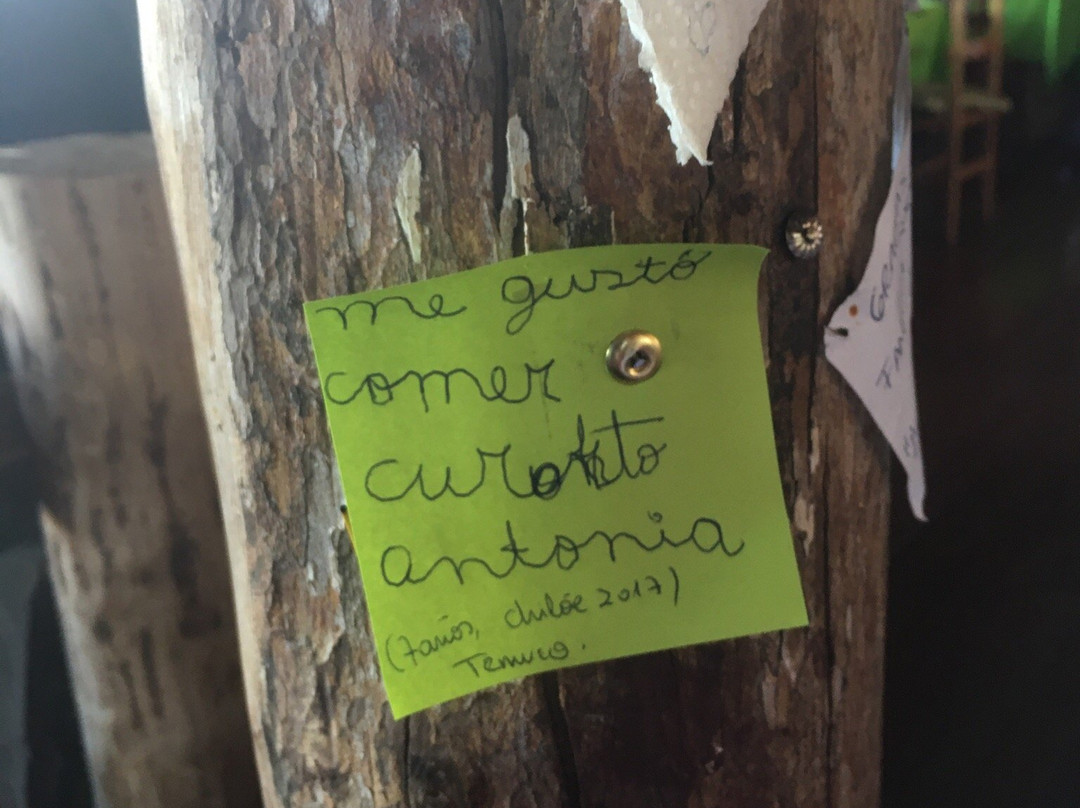 me gustó
comer
curanto
antonia
(7 años, chiloé 2017)
Temuco.